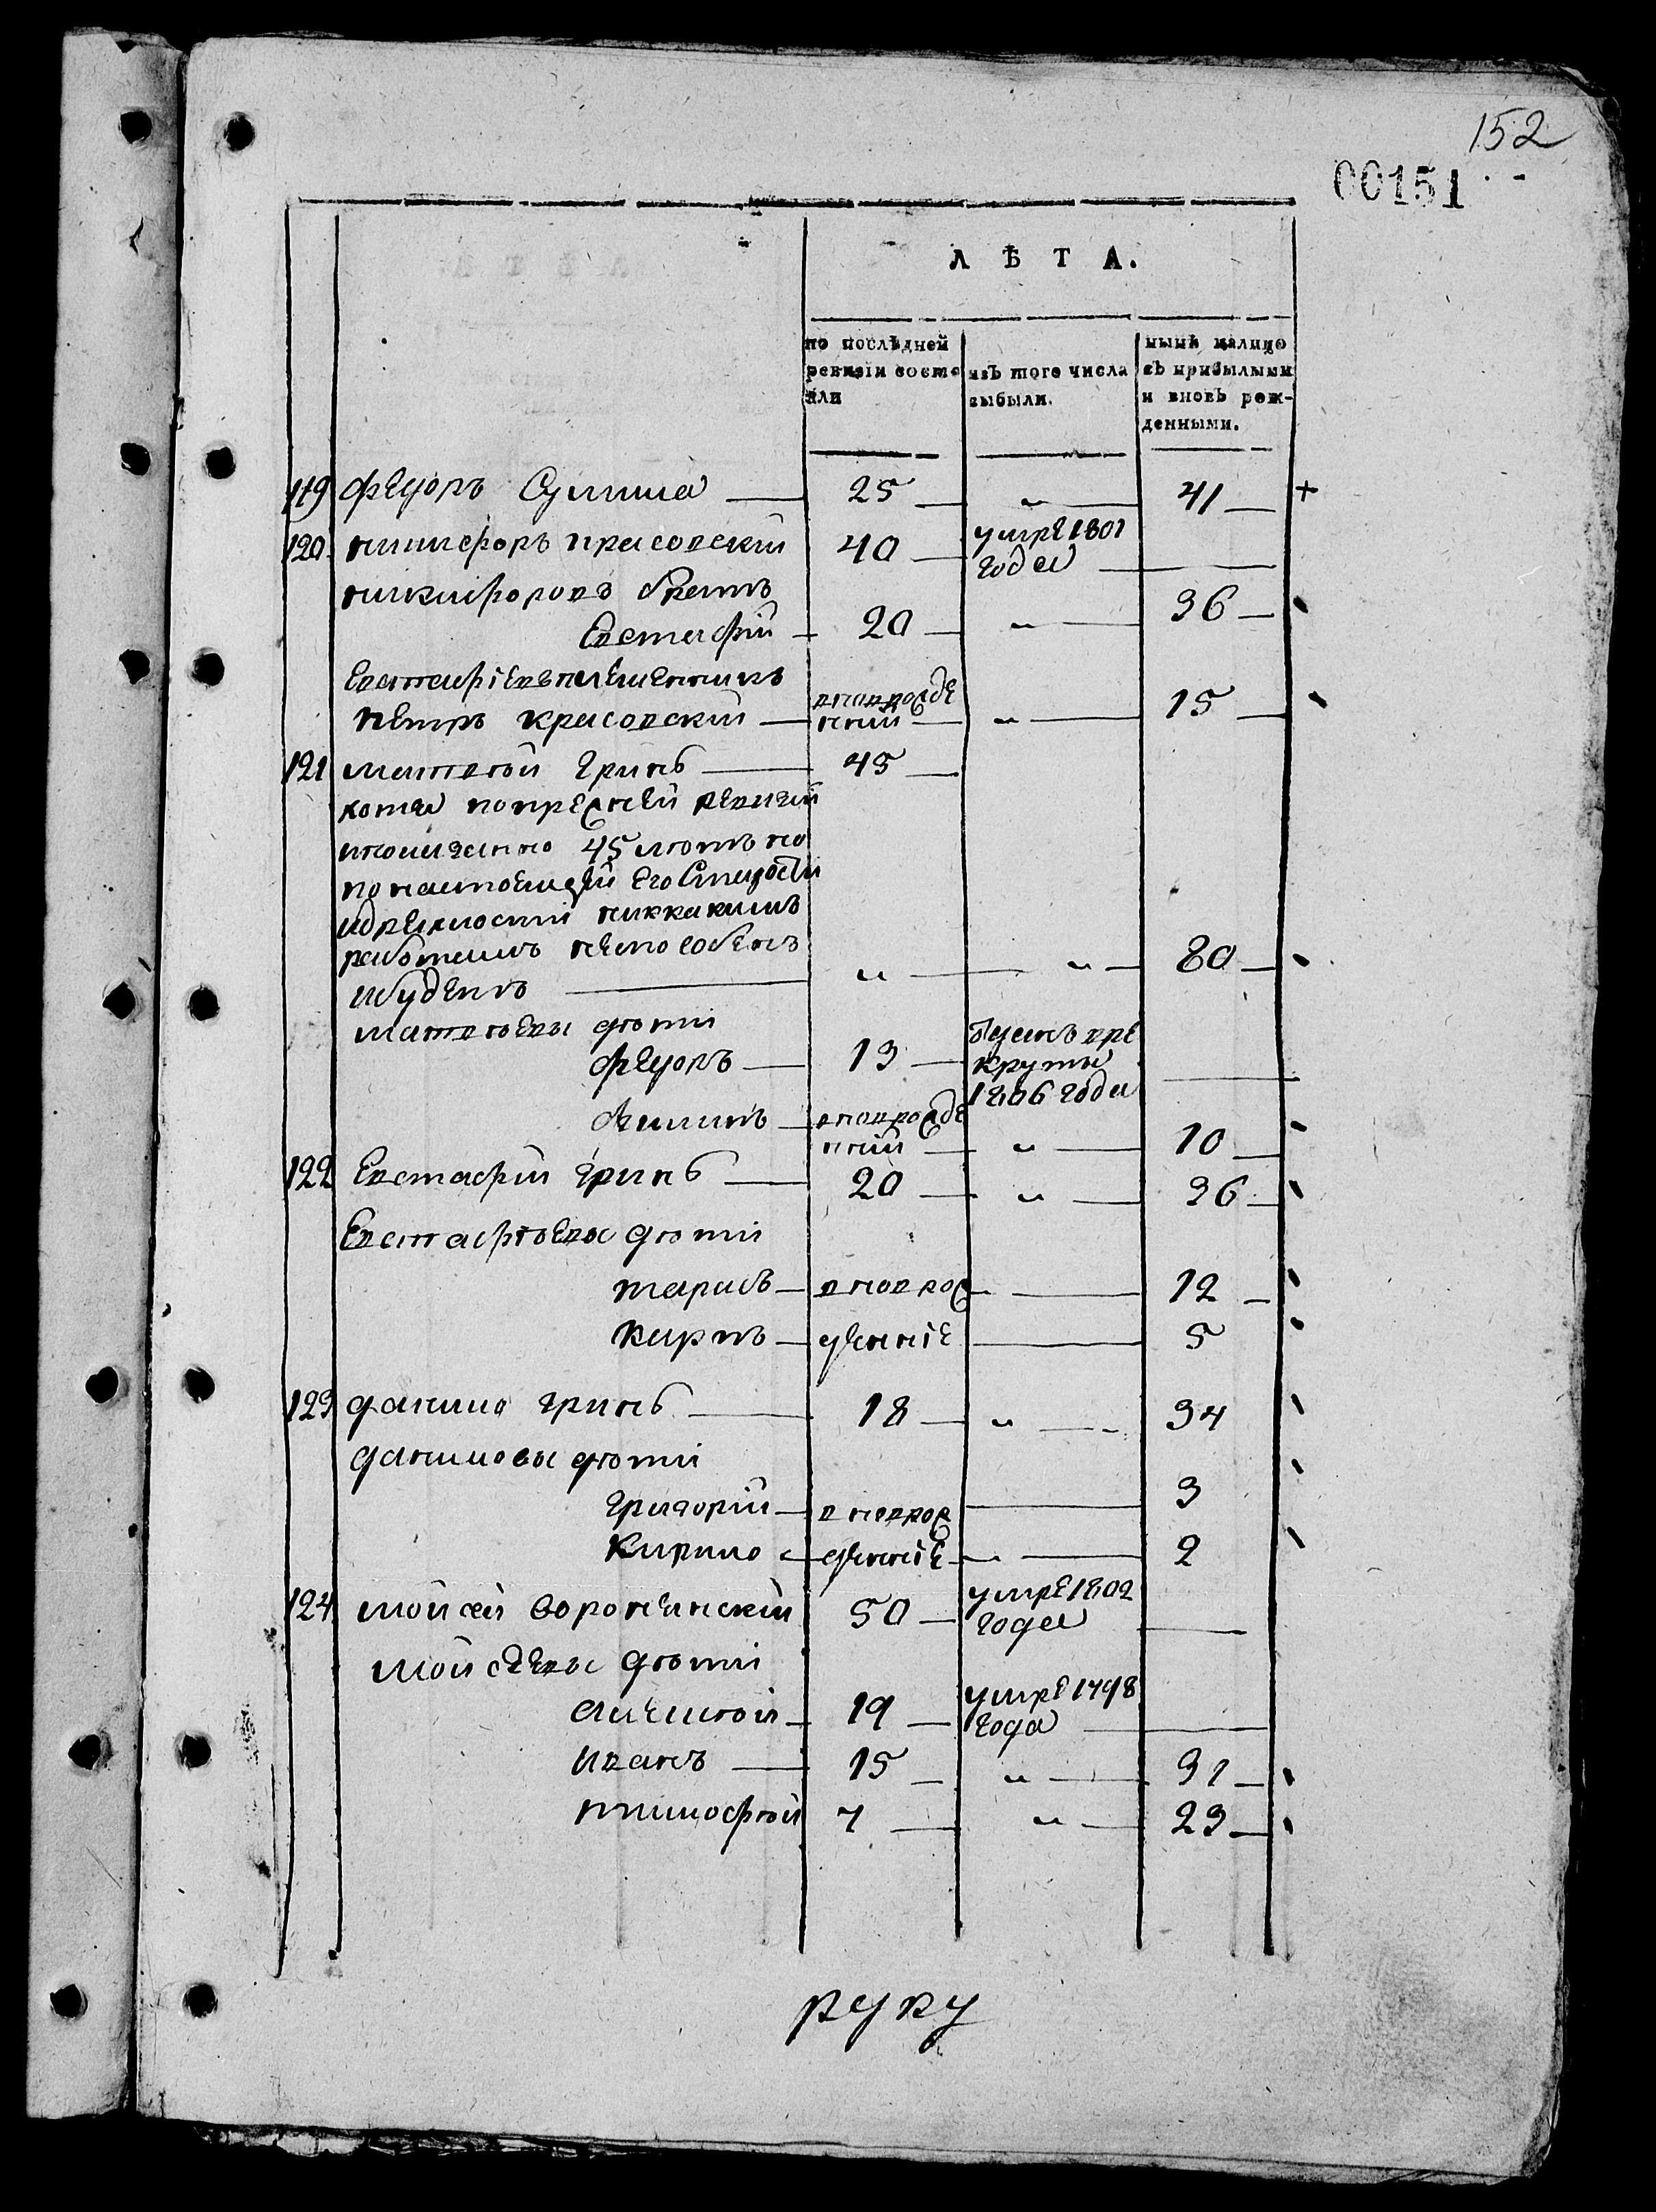 152
00151
ЛѢТА.
по послѣдней ревизіи состояли
изъ того числа выбыли.
нынѣ налицо съ прибылыми и вновь рожденными.
119 Федоръ Сулима 25 „ 41 +
120 никифоръ красовскій 40 умре 1801 года
никифоровъ братъ
Евстафій 20 „ 36
Евстафіевъ племенникъ
петръ красовскій вноворожденій „ 15
121 матвѣй гринь 45
хотя попрежней ревизіи
показанно 45 лѣтъ но
по настоещей его старости
идревности никакимъ
работамъ неспособенъ
ибудетъ „ „ 80
матвѣевы дѣти
Федоръ 13 врекруты 1806 года
вноврожденій „ 10
122 Евстафій гринь 20 „ 36
Евстафѣевы дѣти
тарасъ вноврож 12
карпъ денніе 5
123 данило гринь 18 „ 34
даниловы дѣти
григорій вноврож 3
кирило денніе „ 2
124 мойсей воронянскій 50 умре 1802 года
мойсѣевы дѣти
алексѣй 19 умре 1798 года
иванъ 15 „ 31
тимофѣй 7 „ 23
руку